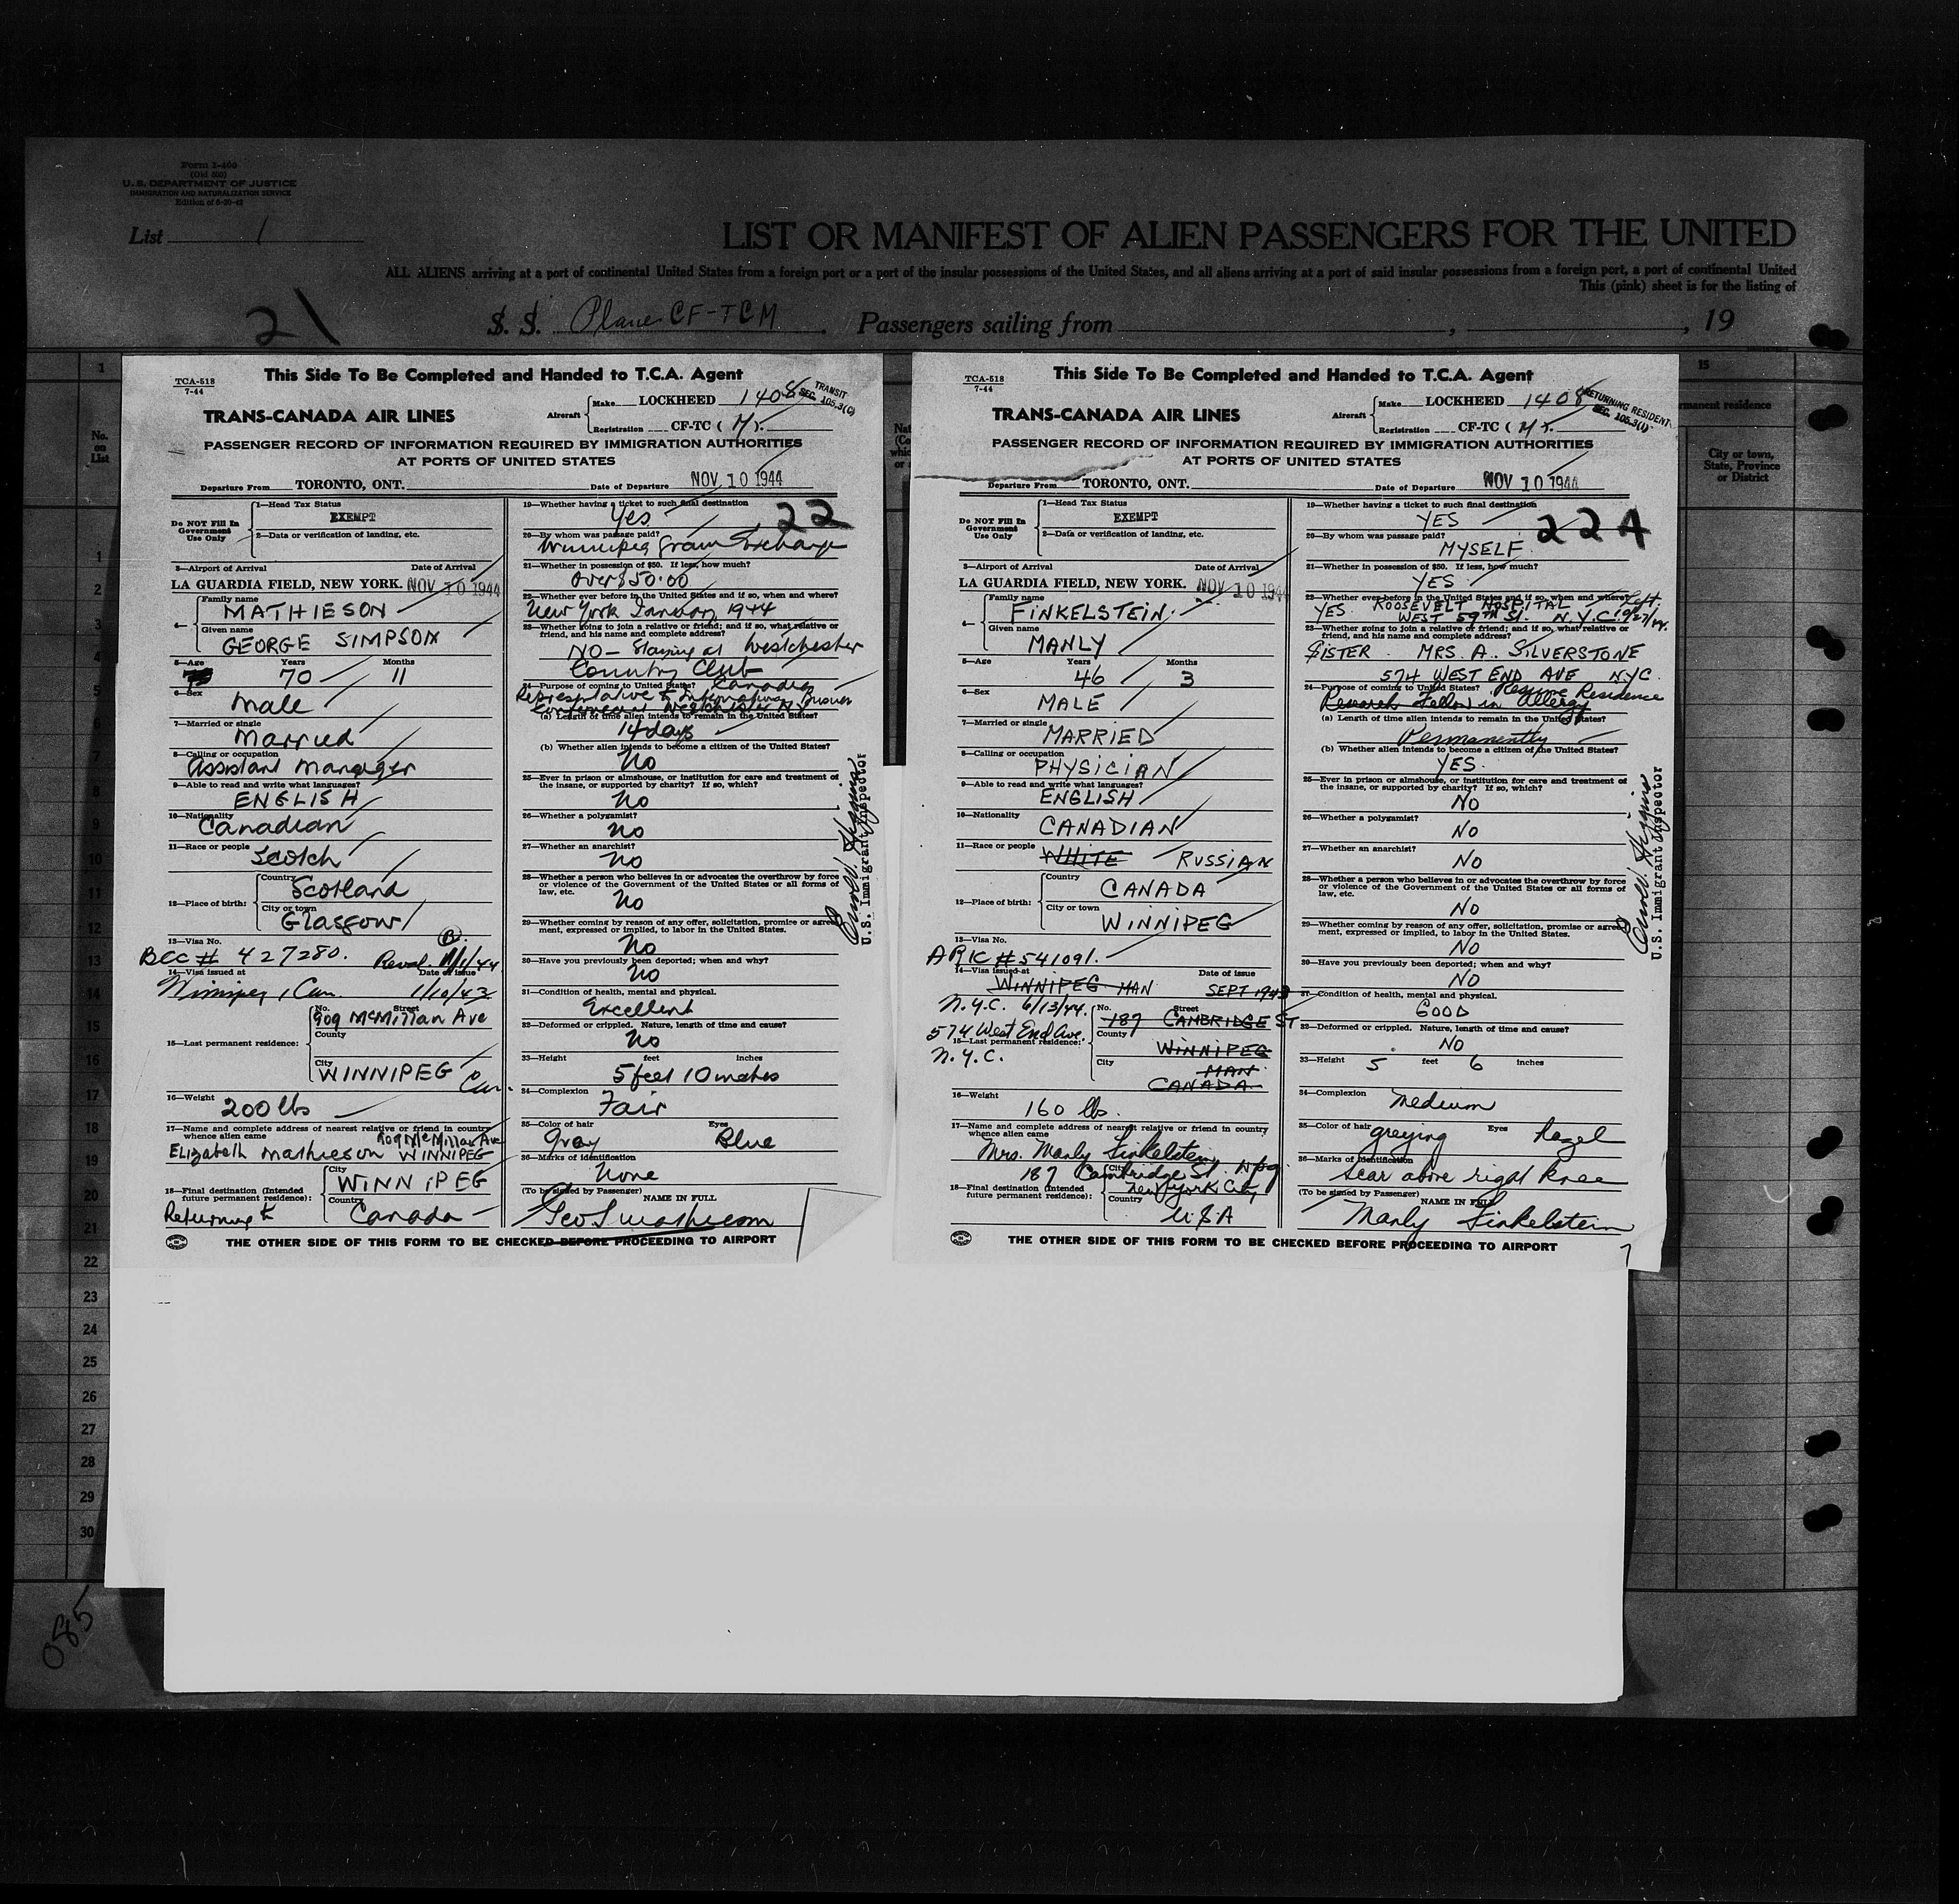 Form I-460
(Old 500)
U. S. DEPARTMENT OF JUSTICE
IMMIGRATION AND NATURALIZATION SERVICE
List 1
LIST OR MANIFEST OF ALIEN PASSENGERS FOR THE UNITED
ALL ALIENS arriving at a port of continental United States from a foreign port or a port of the insular possessions of the United States, and all aliens arriving at a port of said insular possessions from a foreign port, a port of continental United
This (pink) sheet is for the listing of
21
S. S. Plane CF-TCM Passengers sailing from , , 19
No. on List
1
1
2
3
4
5
6
7
8
9
10
11
12
13
14
15
16
17
18
19
20
21
22
23
24
25
26
27
28
29
30
085
TCA-518
7-44
This Side To Be Completed and Handed to T.C.A. Agent
TRANS-CANADA AIR LINES
Aircraft Make LOCKHEED 1408
Registration CF-TC (M).
TRANSIT
SEC. 105.3(C)
PASSENGER RECORD OF INFORMATION REQUIRED BY IMMIGRATION AUTHORITIES
AT PORTS OF UNITED STATES
Departure From TORONTO, ONT. Date of Departure NOV 10 1944
Do NOT Fill In
Government
Use Only
1—Head Tax Status
EXEMPT
2—Data or verification of landing, etc.
3—Airport of Arrival Date of Arrival
LA GUARDIA FIELD, NEW YORK. NOV 10 1944
4— Family name
MATHIESON
Given name
GEORGE SIMPSON
5—Age Years Months
70 11
6—Sex
Male
7—Married or single
Married
8—Calling or occupation
Assistant Manager
9—Able to read and write what languages?
ENGLISH
10—Nationality
Canadian
11—Race or people
Scotch
12—Place of birth:
Country
Scotland
City or town
Glasgow
13—Visa No.
BCC # 427280. Reval. 11/1/44
14—Visa issued at Date of issue
Winnipeg, Can. 1/10/43
15—Last permanent residence:
No. Street
909 McMillan Ave
County
City
WINNIPEG Can.
16—Weight
200 lbs
17—Name and complete address of nearest relative or friend in country
whence alien came
909 McMillan Ave
Elizabeth Mathieson WINNIPEG
18—Final destination (Intended
future permanent residence):
City
WINNIPEG
Country
Returning to Canada
19—Whether having a ticket to such final destination
Yes 22
20—By whom was passage paid?
Winnipeg Grain Exchange
21—Whether in possession of $50. If less, how much?
Over $50.00
22—Whether ever before in the United States and if so, when and where?
New York January 1944
23—Whether going to join a relative or friend; and if so, what relative or
friend, and his name and complete address?
NO - Staying at Westchester
Country Club
24—Purpose of coming to United States? Canadian
Representative to International
(a) Length of time alien intends to remain in the United States?
14 days
(b) Whether alien intends to become a citizen of the United States?
No
25—Ever in prison or almshouse, or institution for care and treatment of
the insane, or supported by charity? If so, which?
No
26—Whether a polygamist?
No
27—Whether an anarchist?
No
28—Whether a person who believes in or advocates the overthrow by force
or violence of the Government of the United States or all forms of
law, etc.
No
29—Whether coming by reason of any offer, solicitation, promise or agreement,
expressed or implied, to labor in the United States.
No
30—Have you previously been deported; when and why?
No
31—Condition of health, mental and physical.
Excellent
32—Deformed or crippled. Nature, length of time and cause?
No
33—Height feet inches
5 feet 10 inches
34—Complexion
Fair
35—Color of hair Eyes
Gray Blue
36—Marks of identification
None
(To be signed by Passenger) NAME IN FULL
Geo S Mathieson
U.S. Immigrant Inspector
THE OTHER SIDE OF THIS FORM TO BE CHECKED BEFORE PROCEEDING TO AIRPORT
TCA-518
7-44
This Side To Be Completed and Handed to T.C.A. Agent
TRANS-CANADA AIR LINES
Aircraft Make LOCKHEED 1408
Registration CF-TC (M).
RETURNING RESIDENT
SEC. 105.3(1)
PASSENGER RECORD OF INFORMATION REQUIRED BY IMMIGRATION AUTHORITIES
AT PORTS OF UNITED STATES
Departure From TORONTO, ONT. Date of Departure NOV 10 1944
Do NOT Fill In
Government
Use Only
1—Head Tax Status
EXEMPT
2—Data or verification of landing, etc.
3—Airport of Arrival Date of Arrival
LA GUARDIA FIELD, NEW YORK. NOV 10 1944
4— Family name
FINKELSTEIN
Given name
MANLY
5—Age Years Months
46 3
6—Sex
MALE
7—Married or single
MARRIED
8—Calling or occupation
PHYSICIAN
9—Able to read and write what languages?
ENGLISH
10—Nationality
CANADIAN
11—Race or people
WHITE RUSSIAN
12—Place of birth:
Country
CANADA
City or town
WINNIPEG
13—Visa No.
ARC # 541091.
14—Visa issued at Date of issue
WINNIPEG MAN SEPT 1943
N.Y.C. 6/13/44.
15—Last permanent residence:
574 West End Ave.
N.Y.C.
No. Street
187 CAMBRIDGE ST
County
WINNIPEG
City
MAN
CANADA
16—Weight
160 lbs.
17—Name and complete address of nearest relative or friend in country
whence alien came
Mrs. Manly Finkelstein
187 Cambridge St. Wpg
18—Final destination (Intended
future permanent residence):
City
New York City
Country
USA
19—Whether having a ticket to such final destination
YES 22A
20—By whom was passage paid?
MYSELF
21—Whether in possession of $50. If less, how much?
YES
22—Whether ever before in the United States and if so, when and where?
YES ROOSEVELT HOSPITAL Left
WEST 59TH St. N.Y.C. 10/27/44.
23—Whether going to join a relative or friend; and if so, what relative or
friend, and his name and complete address?
SISTER MRS. A. SILVERSTONE
574 WEST END AVE NYC
24—Purpose of coming to United States? Resume Residence
Research Fellow in Allergy
(a) Length of time alien intends to remain in the United States?
Permanently
(b) Whether alien intends to become a citizen of the United States?
YES
25—Ever in prison or almshouse, or institution for care and treatment of
the insane, or supported by charity? If so, which?
NO
26—Whether a polygamist?
NO
27—Whether an anarchist?
NO
28—Whether a person who believes in or advocates the overthrow by force
or violence of the Government of the United States or all forms of
law, etc.
NO
29—Whether coming by reason of any offer, solicitation, promise or agreement,
expressed or implied, to labor in the United States.
NO
30—Have you previously been deported; when and why?
NO
31—Condition of health, mental and physical.
GOOD
32—Deformed or crippled. Nature, length of time and cause?
NO
33—Height 5 feet 6 inches
34—Complexion
Medium
35—Color of hair Eyes
greying hazel
36—Marks of identification
scar above right knee
(To be signed by Passenger) NAME IN FULL
Manly Finkelstein
U.S. Immigrant Inspector
THE OTHER SIDE OF THIS FORM TO BE CHECKED BEFORE PROCEEDING TO AIRPORT
15
rmanent residence
City or town,
State, Province
or District